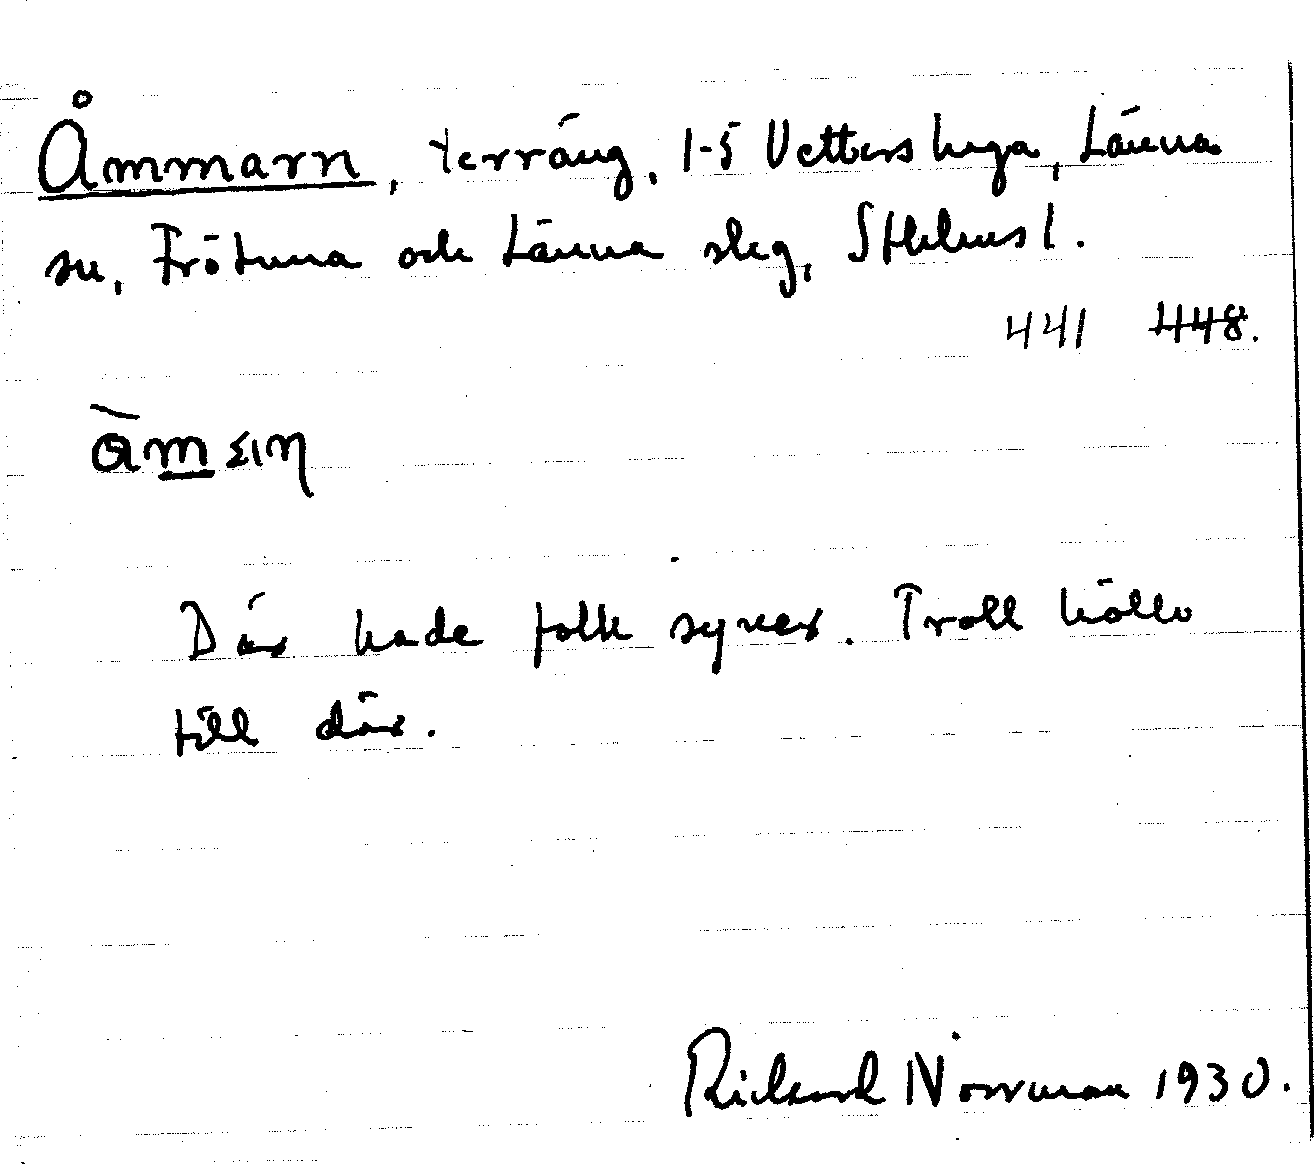 Åmmarn, terräng, 1-5 Vettershaga, Länna
sn, Frötuna och Länna slg, Sthlms l.
441 448.
Där hade folk syner. Troll höllo
till där.
Rickard Norrman 1930.